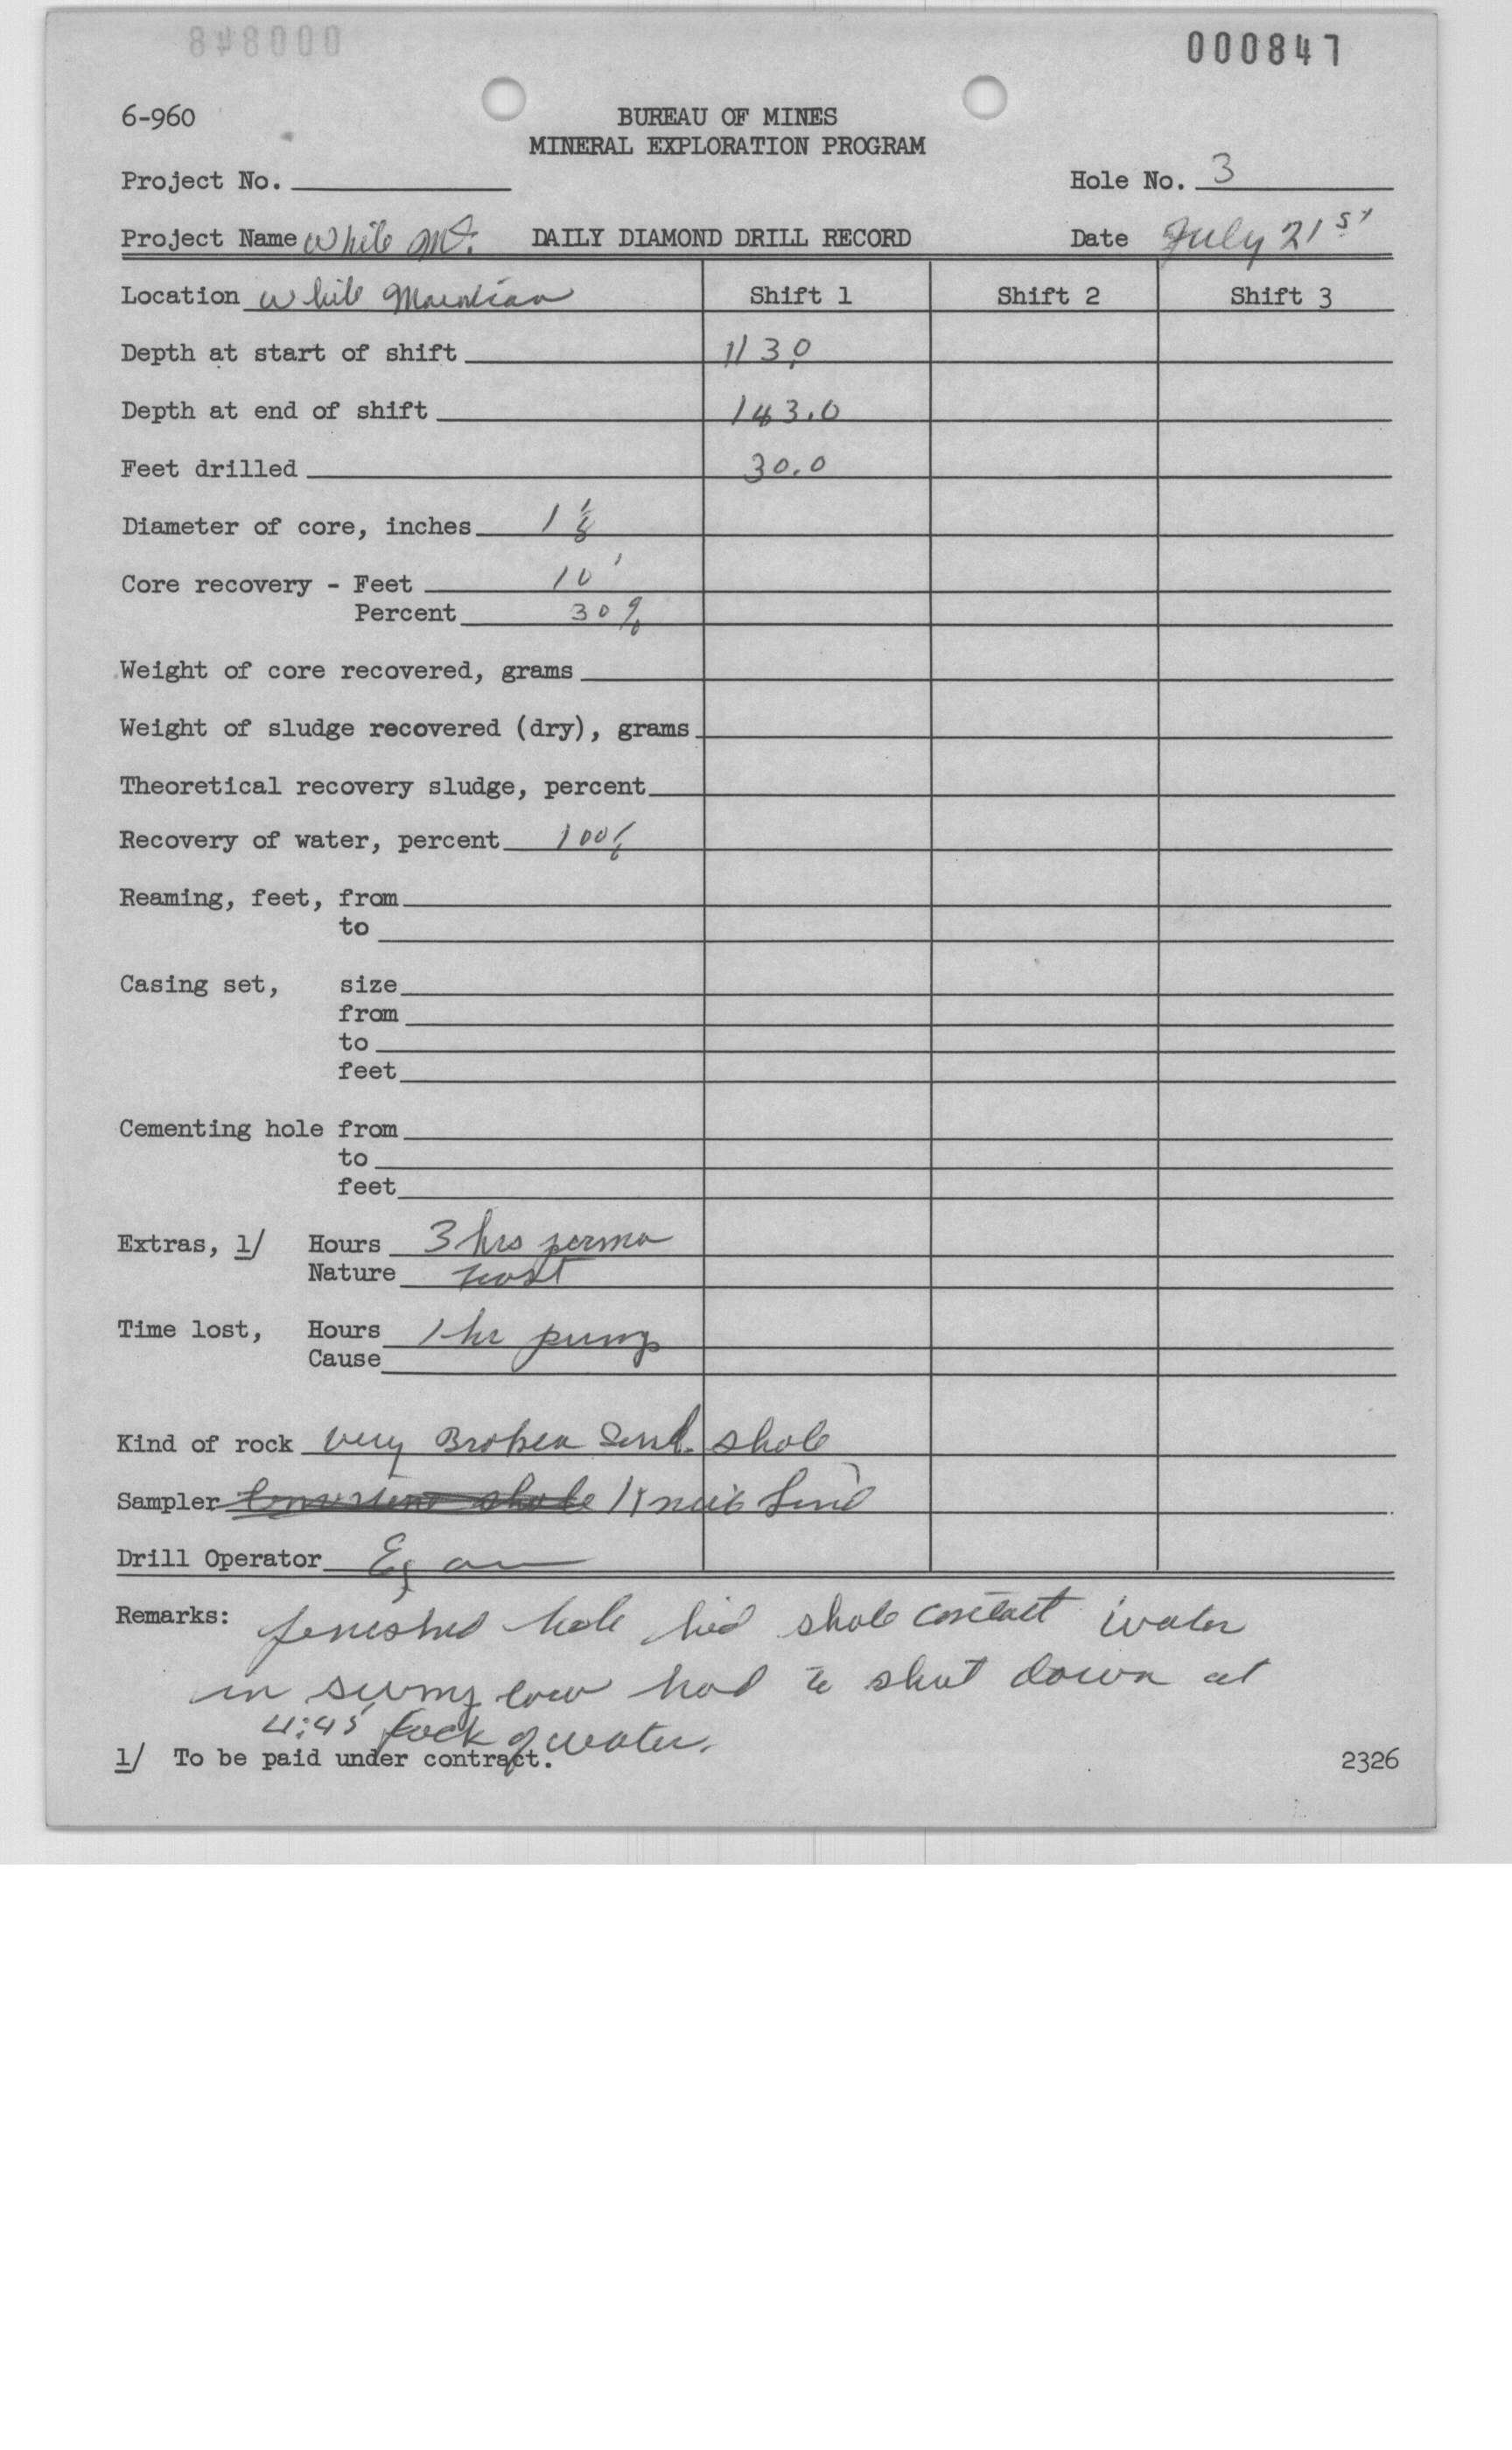 000848
000847
6-960
BUREAU OF MINES
MINERAL EXPLORATION PROGRAM
Project No.
Hole No. 3
Project Name White Mt. DAILY DIAMOND DRILL RECORD Date July 21st
Location White Mountain Shift 1 Shift 2 Shift 3
Depth at start of shift 113.0
Depth at end of shift 143.0
Feet drilled 30.0
Diameter of core, inches 1 1/8
Core recovery - Feet 10'
Percent 30%
Weight of core recovered, grams
Weight of sludge recovered (dry), grams
Theoretical recovery sludge, percent
Recovery of water, percent 100%
Reaming, feet, from
to
Casing set, size
from
to
feet
Cementing hole from
to
feet
Extras, 1/ Hours 3 hrs perma
Nature frost
Time lost, Hours 1 hr pump
Cause
Kind of rock very Broken shale
Sampler
Drill Operator Egan
Remarks: hole shale contact water
in sump low had to shut down at
4:45 lack of water.
1/ To be paid under contract.
2326